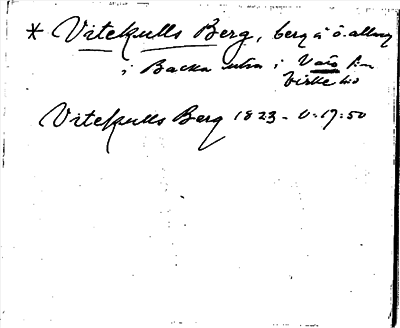 * Vitekulls Berg, berg å ö. allmng
i Backa utm i Varö sn
Viske hd
Vitekulls Berg 1823 - V:17:50